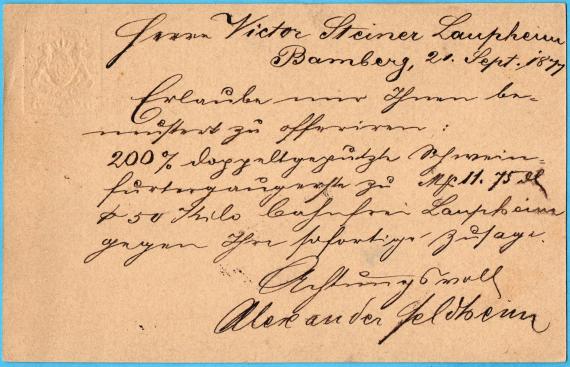 Herrn Victor Steiner Laupheim
Bamberg, 21. Sept. 1877
Erlaube mir Ihnen be-
mustert zu offeriren:
200 % doppeltgeputzte Schwein-
furtergaugerste zu Mk 11.75 dl
50 Kilo bahnfrei Laupheim
gegen Ihre sofortige Zusage.
Achtungsvoll
Alexander Feldheim